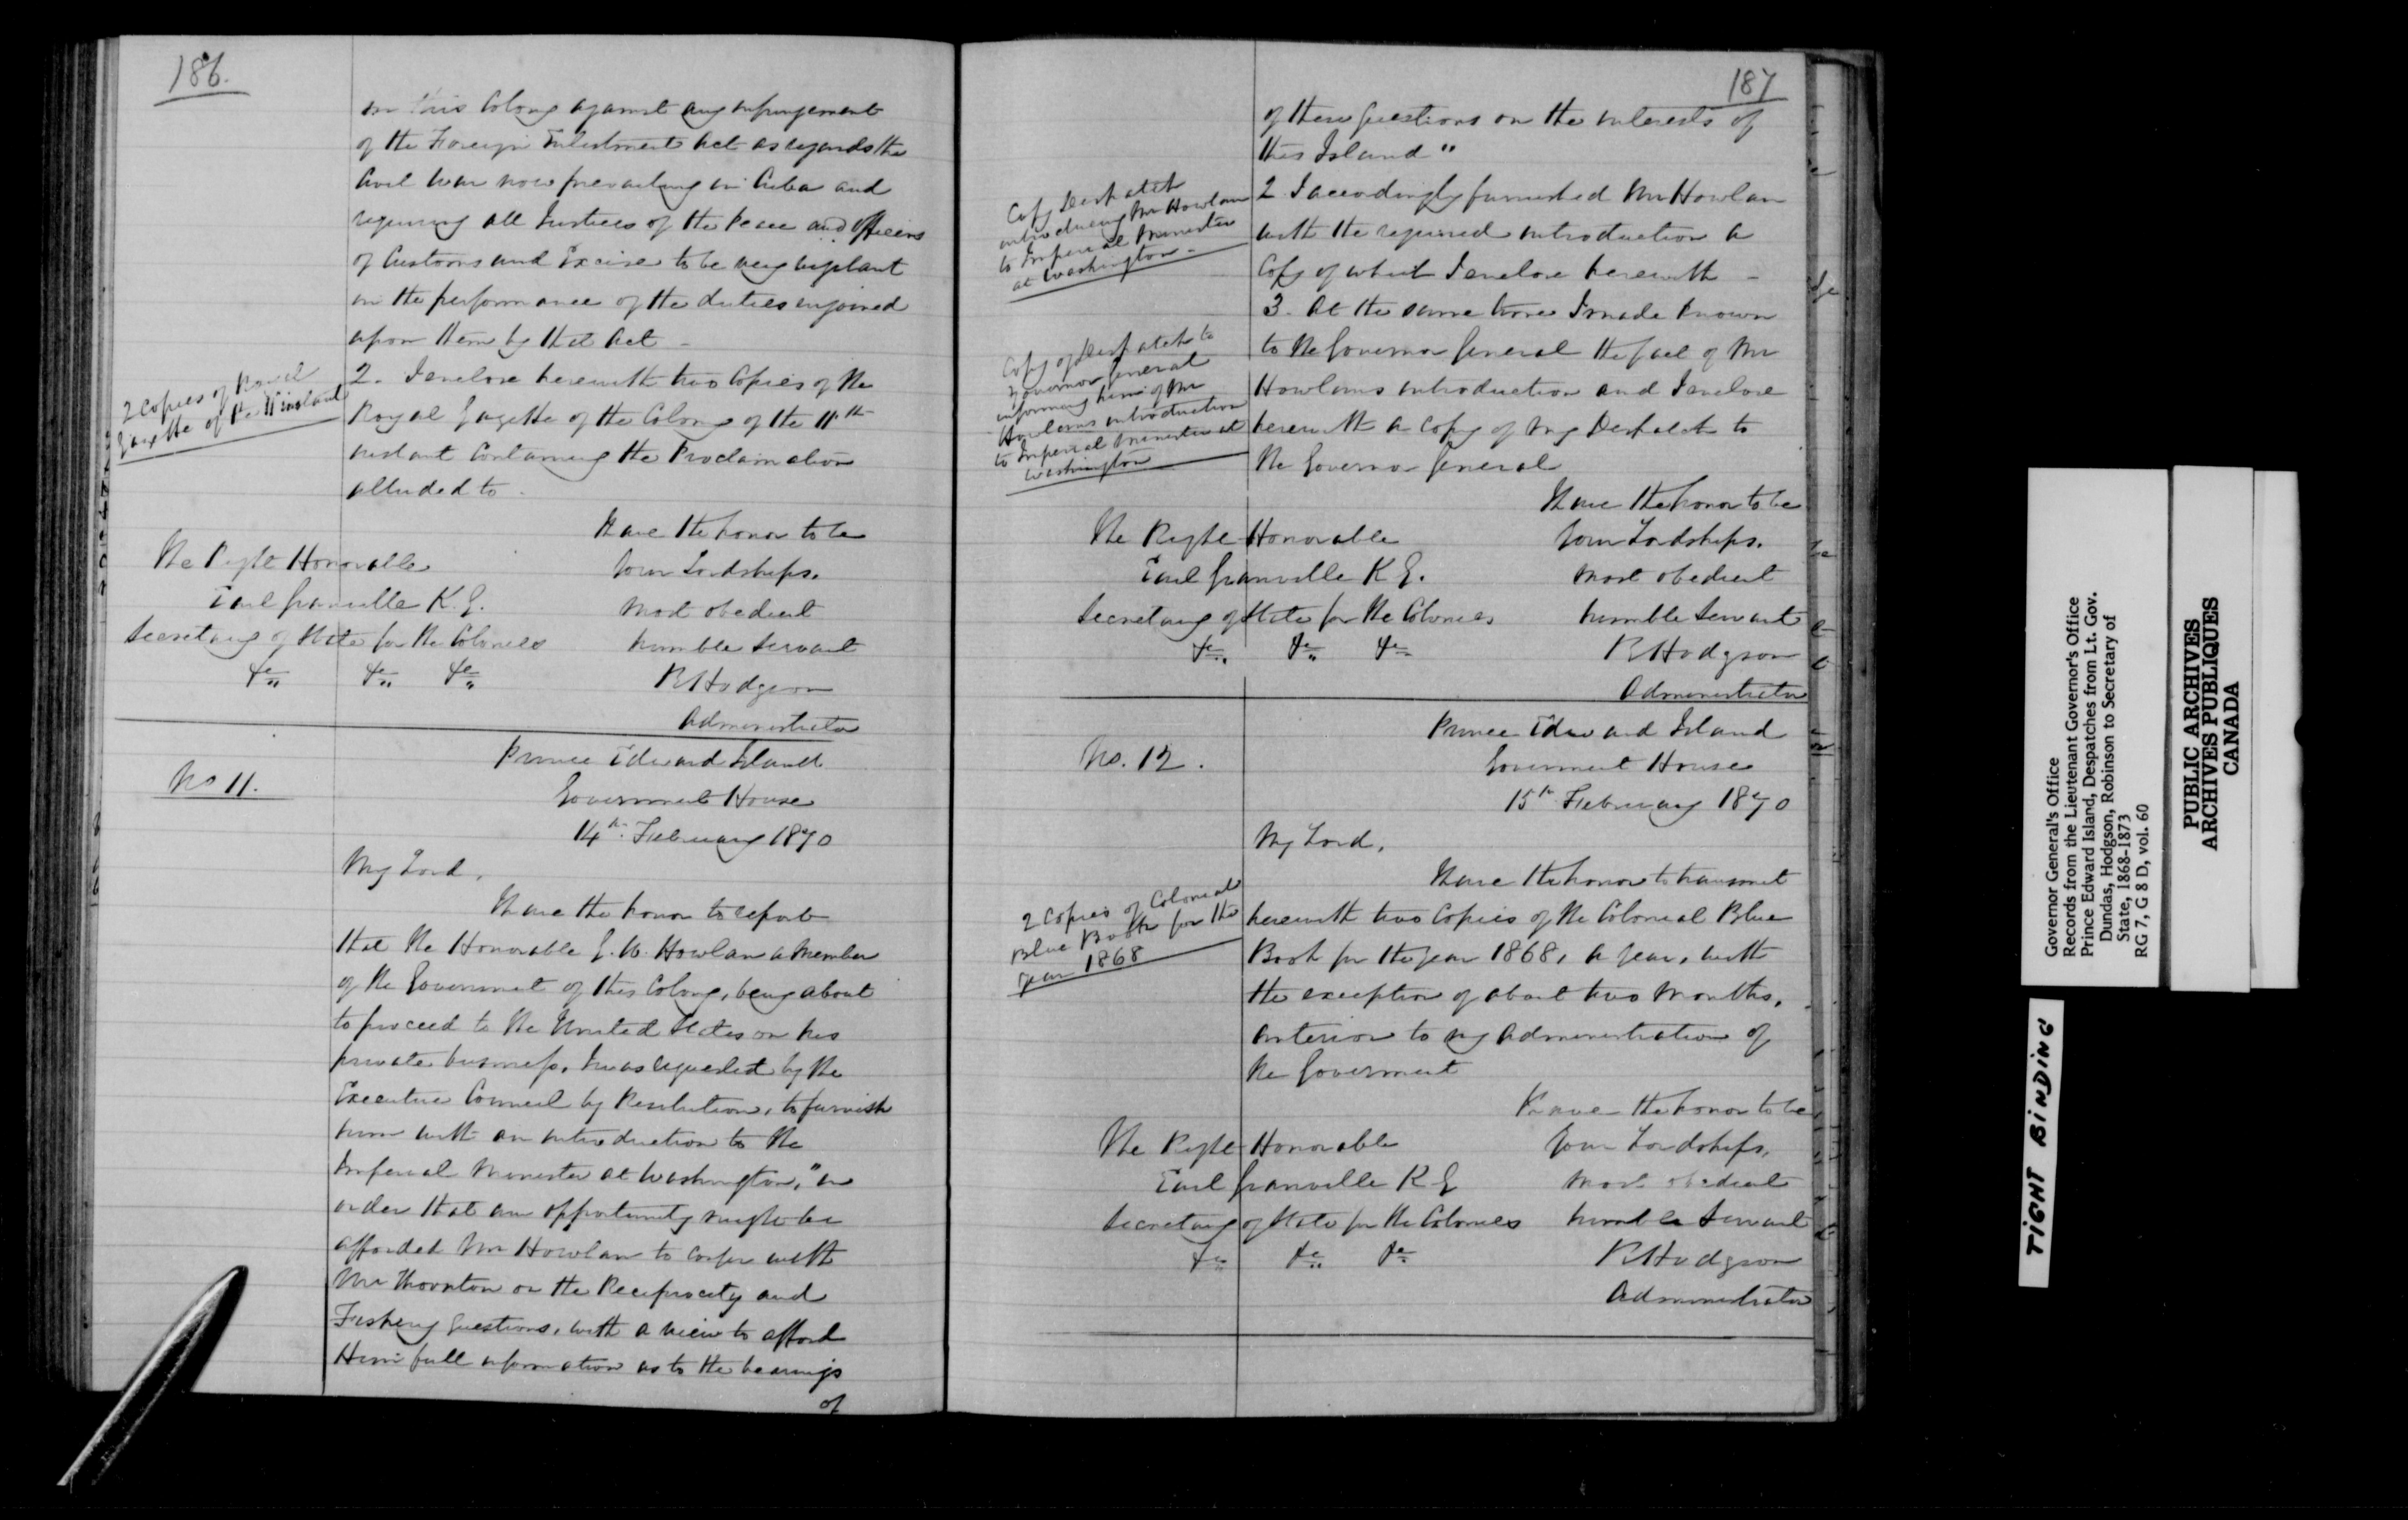 186.
in this Colony against any infringement
of the Foreign Enlistment Act as regards the
Civil War now prevailing in Cuba and
requiring all Justices of the Peace and Officers
of Customs and Excise to be very vigilant
in the performance of the duties enjoined
upon them by that Act —
2 Copies of Royal
Gazette of
2. I enclose herewith two Copies of the
Royal Gazette of the Colony of the 11th
instant containing the Proclamation
alluded to.
I have the honor to be
Your Lordships.
most obedient
humble Servant
R Hodgson
Administrator
The Right Honorable
Earl Granville K. G.
Secretary of State for the Colonies
&c &c &c
No 11.
Prince Edward Island
Government House
14th. February 1870
My Lord,
I have the honor to report
that the Honorable G. W. Howlan a Member
of the Government of this Colony, being about
to proceed to the United States on his
private business, I was requested by the
Executive Council by Resolution, to furnish
him with an introduction to the
Imperial Minister at Washington, "in
order that an opportunity might be
afforded Mr Howlan to confer with
Mr Thornton on the Reciprocity and
Fishery Questions, with a view to afford
Him full information as to the bearings
of
187
of these Questions on the interests of
this Island"
Copy Despatch
introducing Mr Howlan
to Imperial Minister
at Washington —
2 I accordingly furnished Mr Howlan
with the required introduction a
Copy of which I enclose herewith —
3. At the same time I made known
to the Governor General the fact of Mr
Howlans introduction and I enclose
herewith a Copy of my Despatch to
the Governor General
Copy of Despatch to
Governor General
informing him of Mr
Howlans introduction
to Imperial Minister at
Washington
I have the honor to be
Your Lordships.
most obedient
humble Servant
R Hodgson
Administrator
The Right Honorable
Earl Granville K G.
Secretary of State for the Colonies
&c &c &c
No. 12.
Prince Edward Island
Government House
15th February 1870
My Lord,
I have the honor to transmit
herewith two Copies of the Colonial Blue
Book for the year 1868, a year, with
the exception of about two months,
anterior to my Administration of
the Government
2 Copies of Colonial
Blue Book for the
year 1868
I have the honor to be
Your Lordships,
most obedient
humble Servant
R Hodgson
Administrator
The Right Honorable
Earl Granville K G
Secretary of State for the Colonies
&c &c &c
Governor General's Office
Records from the Lieutenant Governor's Office
Prince Edward Island, Despatches from Lt. Gov.
Dundas, Hodgson, Robinson to Secretary of
State, 1868-1873
RG 7, G 8 D, vol. 60
PUBLIC ARCHIVES
ARCHIVES PUBLIQUES
CANADA
TIGHT BINDING